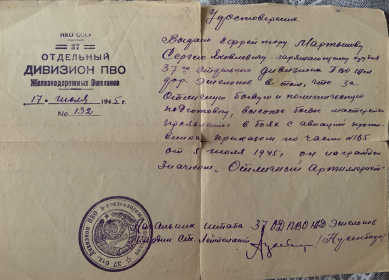 НКО СССР
37
ОТДЕЛЬНЫЙ
ДИВИЗИОН ПВО
Железнодорожных Эшелонов
17 июля 1945 г.
No 132
Удостоверение
Выдано Ефрейтору
Сергею Яковлевичу заряжающему орудия
37го Отдельного Дивизиона ПВО
Эшелонов в том, что за
Отличную боевую и политическую
подготовку, высокое боевое мастерство
проявленное в боях с авиацией
приказом по части №165
от 5 июля 1945, он награжден
Значком „Отличный Артиллерист"
Начальник штаба 37 ОД ПВО ЖД Эшелонов
Гвардии Ст. Лейтенант